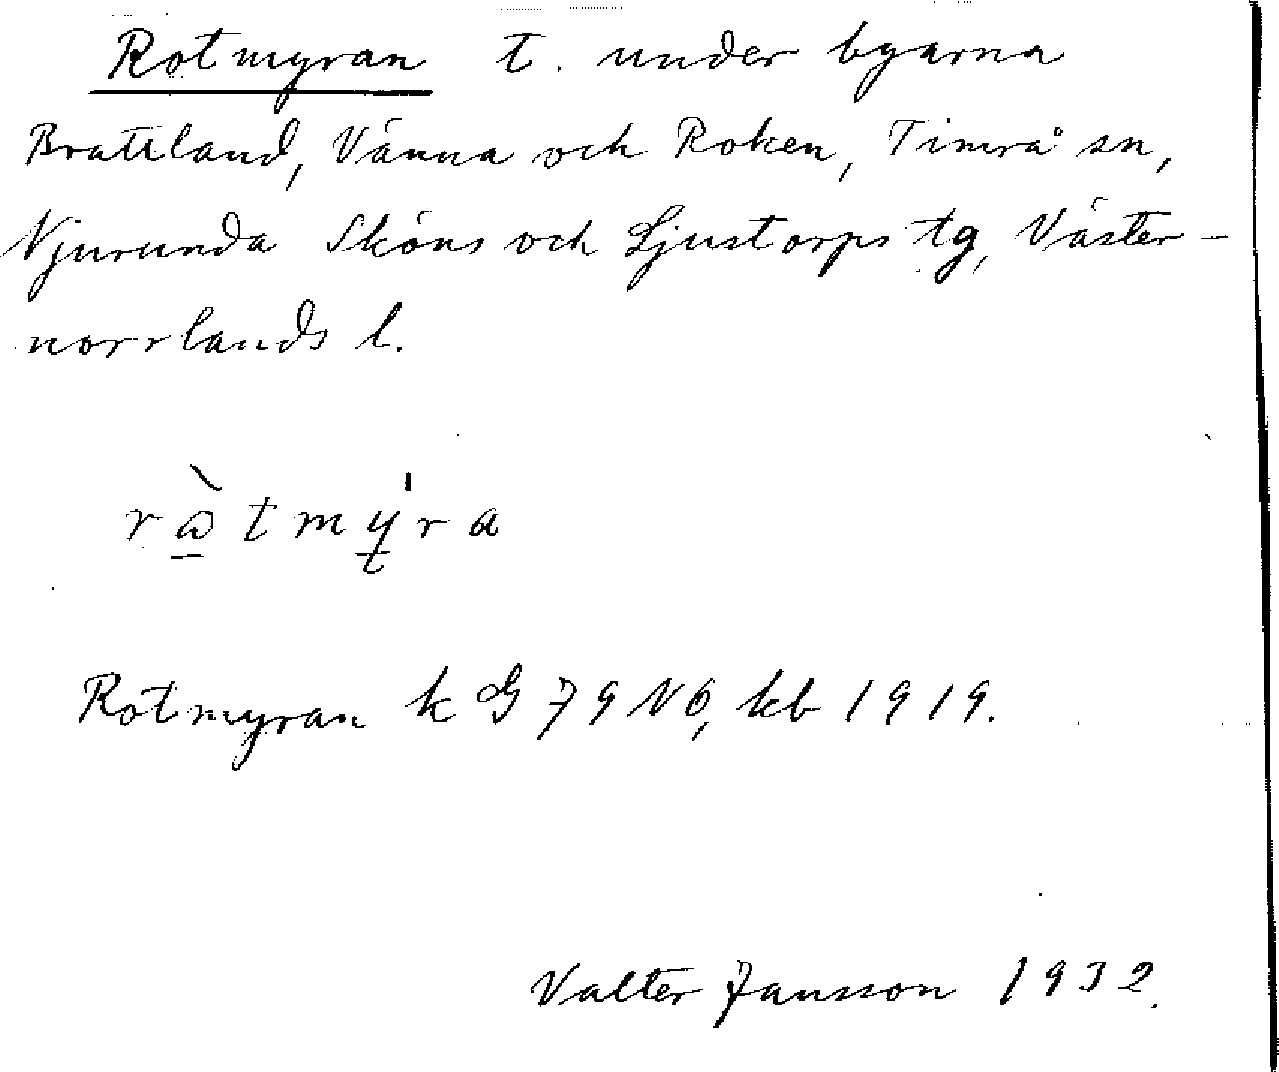 Rotmyran t. under byarna
Brattland, Vänna och Roken, Timrå sn,
Njurunda Sköns och Ljustorps tg, Väster-
norrlands l.
Rotmyran k G 79 NO, kb 1919.
Valter Jansson 1932.